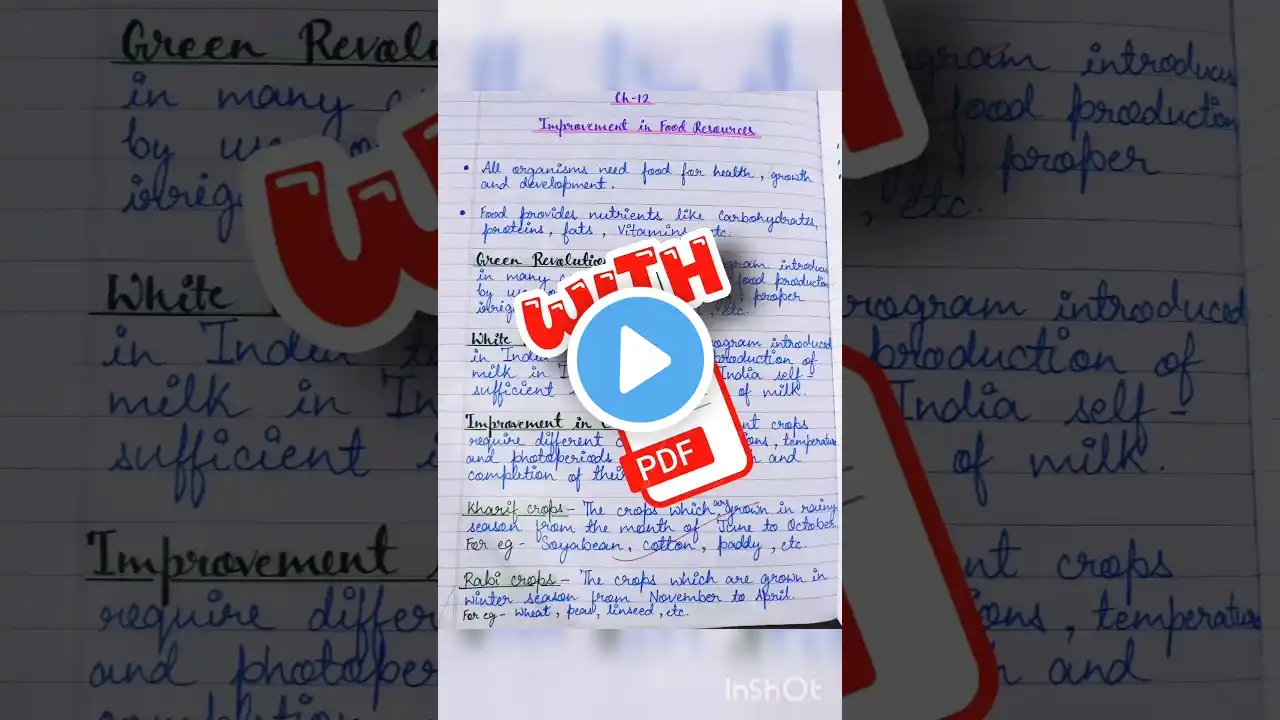 Ch-12
Improvement in Food Resources
• All organisms need food for health, growth
and development.
• Food provides nutrients like carbohydrates,
proteins, fats, vitamins, etc.
Green Revolution gram introduces
in many food production
by us proper
irrig , etc.
White rogram introduced
in India production of
milk in India self-
sufficient of milk.
Improvement in nt crops
require different ons, temperature
and photoperiods and
completion of their
Kharif crops - The crops which are grown in rainy
season from the month of June to October.
For eg - Soyabean, cotton, paddy, etc.
Rabi crops - The crops which are grown in
winter season from November to April.
For eg - wheat, pea, linseed, etc.
WITH
PDF
InShOt